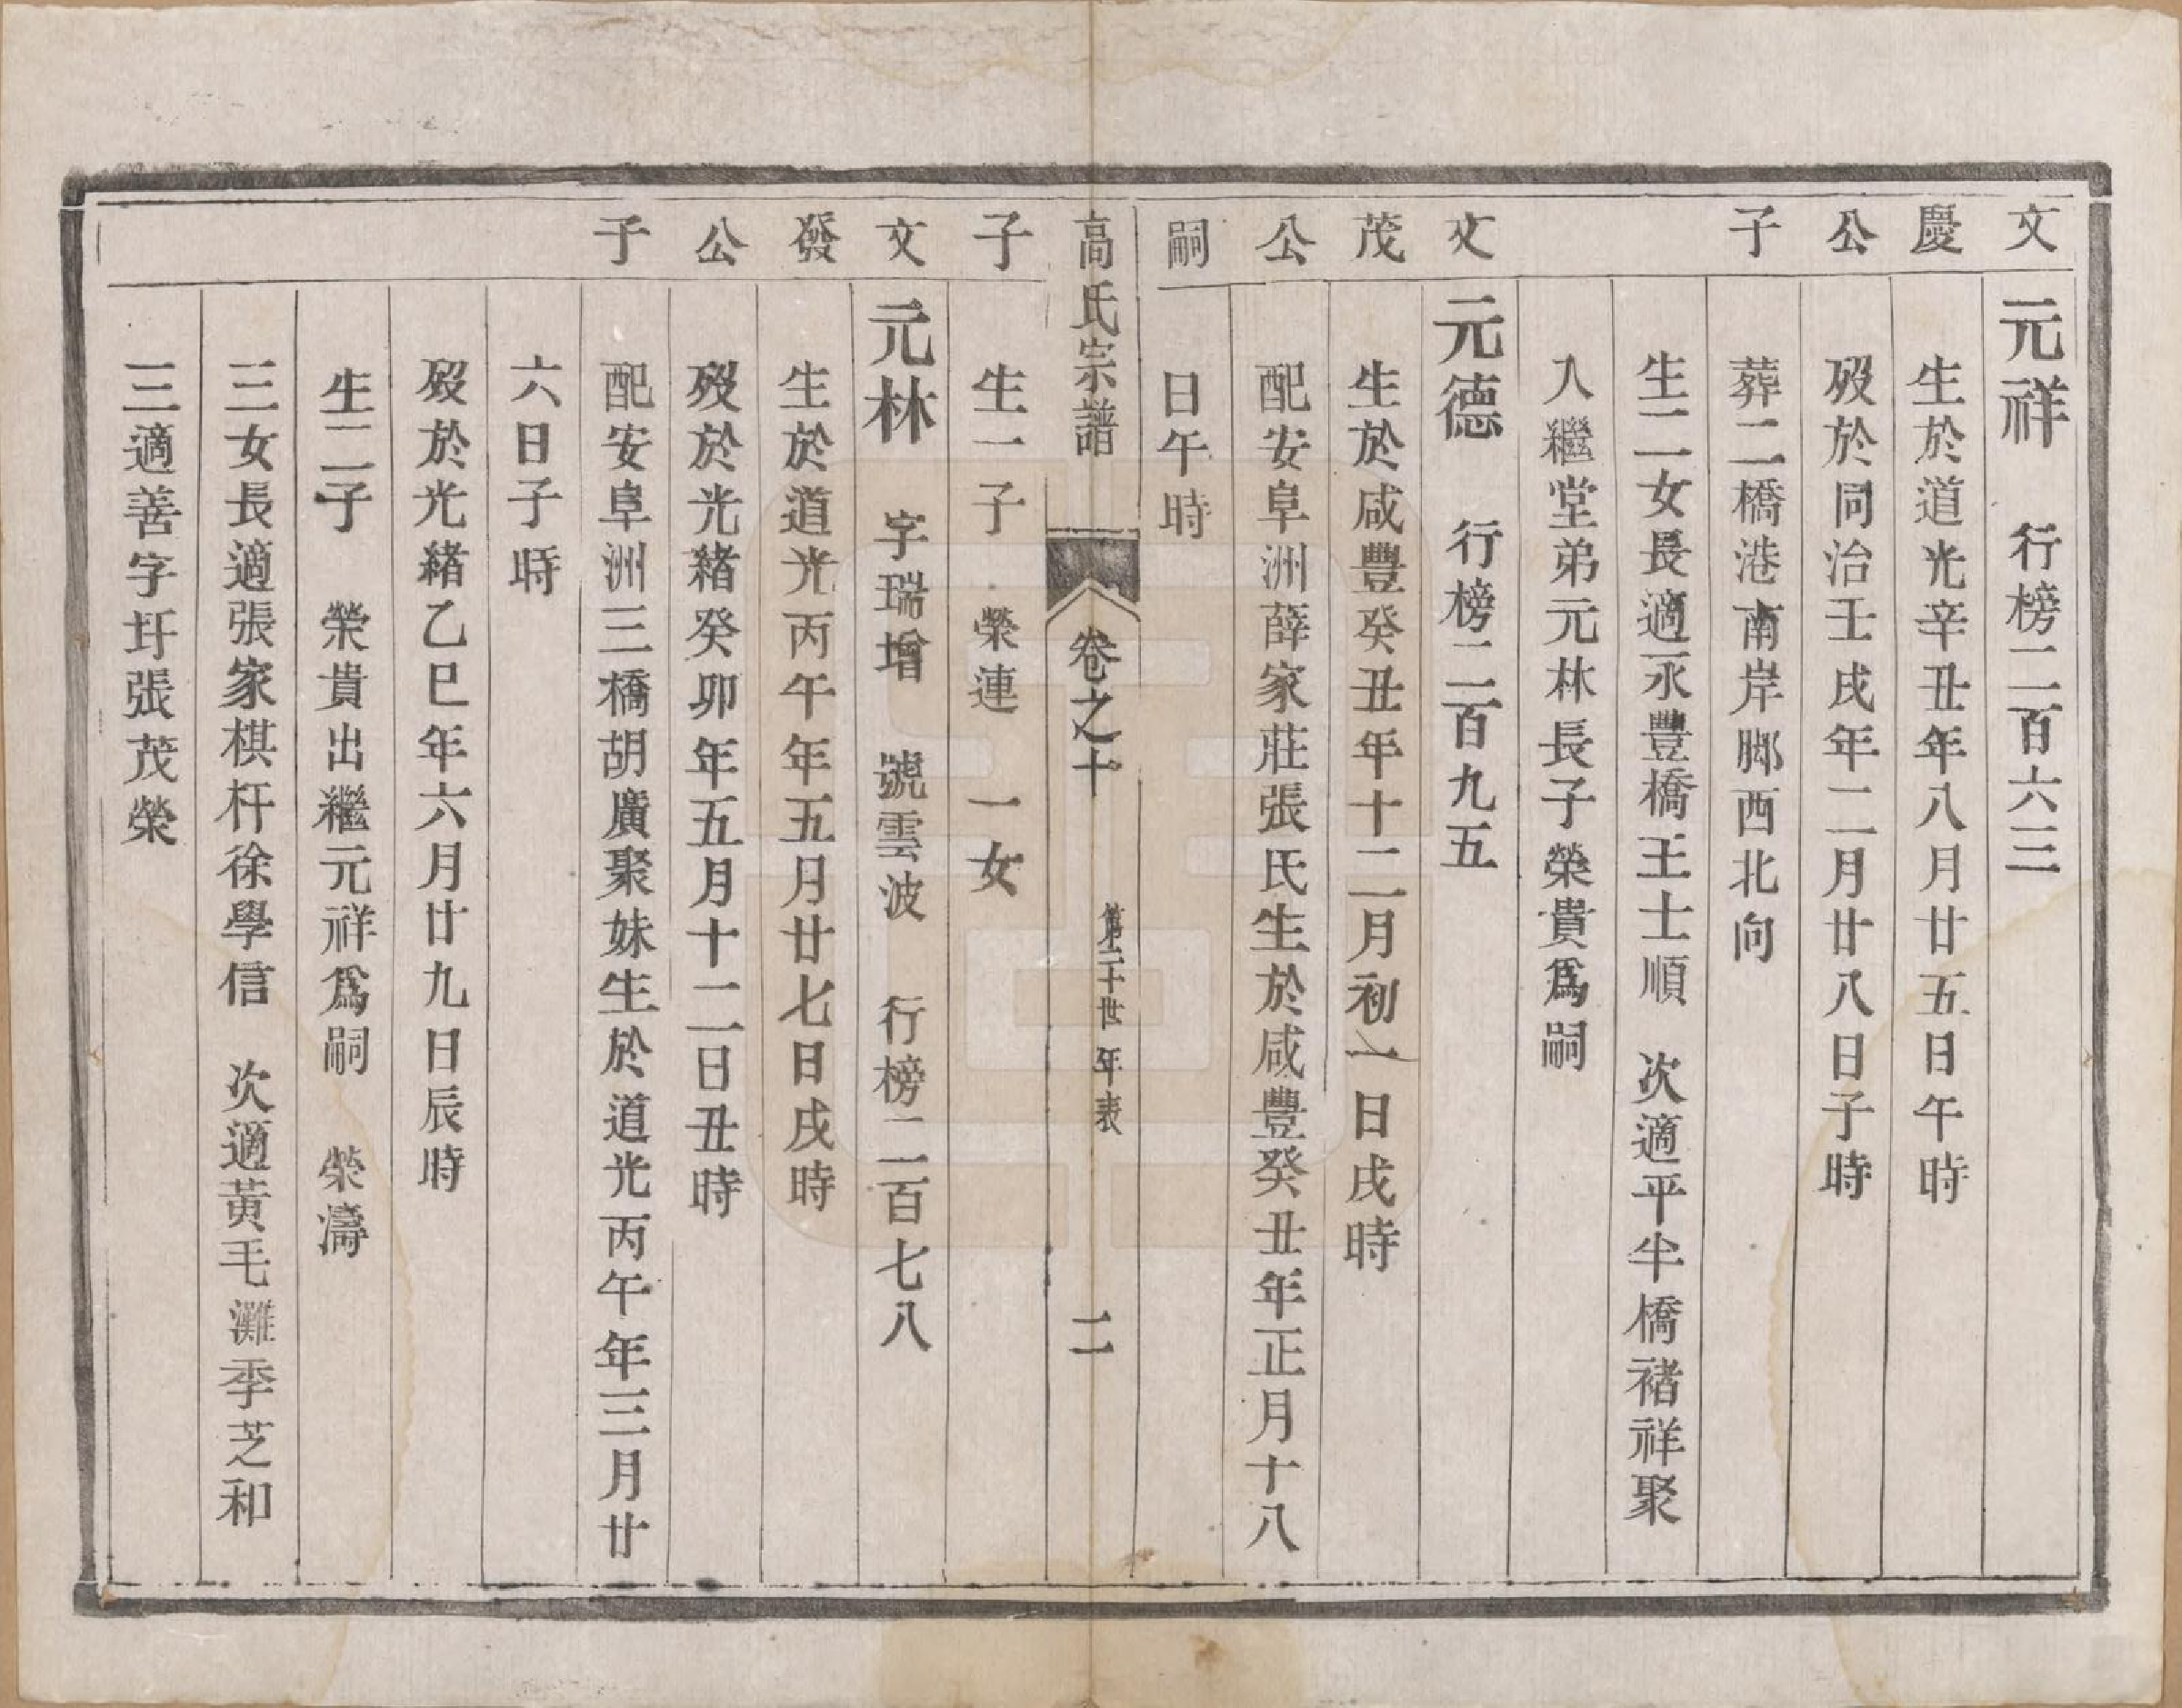 文　元祥　行榜二百六三
慶　生於道光辛丑年八月廿五日午時
公　歿於同治壬戌年二月廿八日子時
子　葬二橋港南岸脚西北向
生二女長適永豐橋王士順　次適平半橋褚祥聚
入繼堂弟元林長子榮貴爲嗣
文　元德　行榜二百九五
茂　生於咸豐癸丑年十二月初一日戌時
公　配安阜洲薛家莊張氏生於咸豐癸丑年正月十八
嗣　日午時
高氏宗譜　卷之十　第二十世　年表　二
子　生一子　榮連　一女
文　元林　字瑞增　號雲波　行榜二百七八
發　生於道光丙午年五月廿七日戌時
公　歿於光緖癸卯年五月十二日丑時
子　配安阜洲三橋胡廣聚妹生於道光丙午年三月廿
六日子時
歿於光緖乙巳年六月廿九日辰時
生二子　榮貴出繼元祥爲嗣　榮濤
三女長適張家棋杆徐學信　次適黃毛灘季芝和
三適善字圩張茂榮